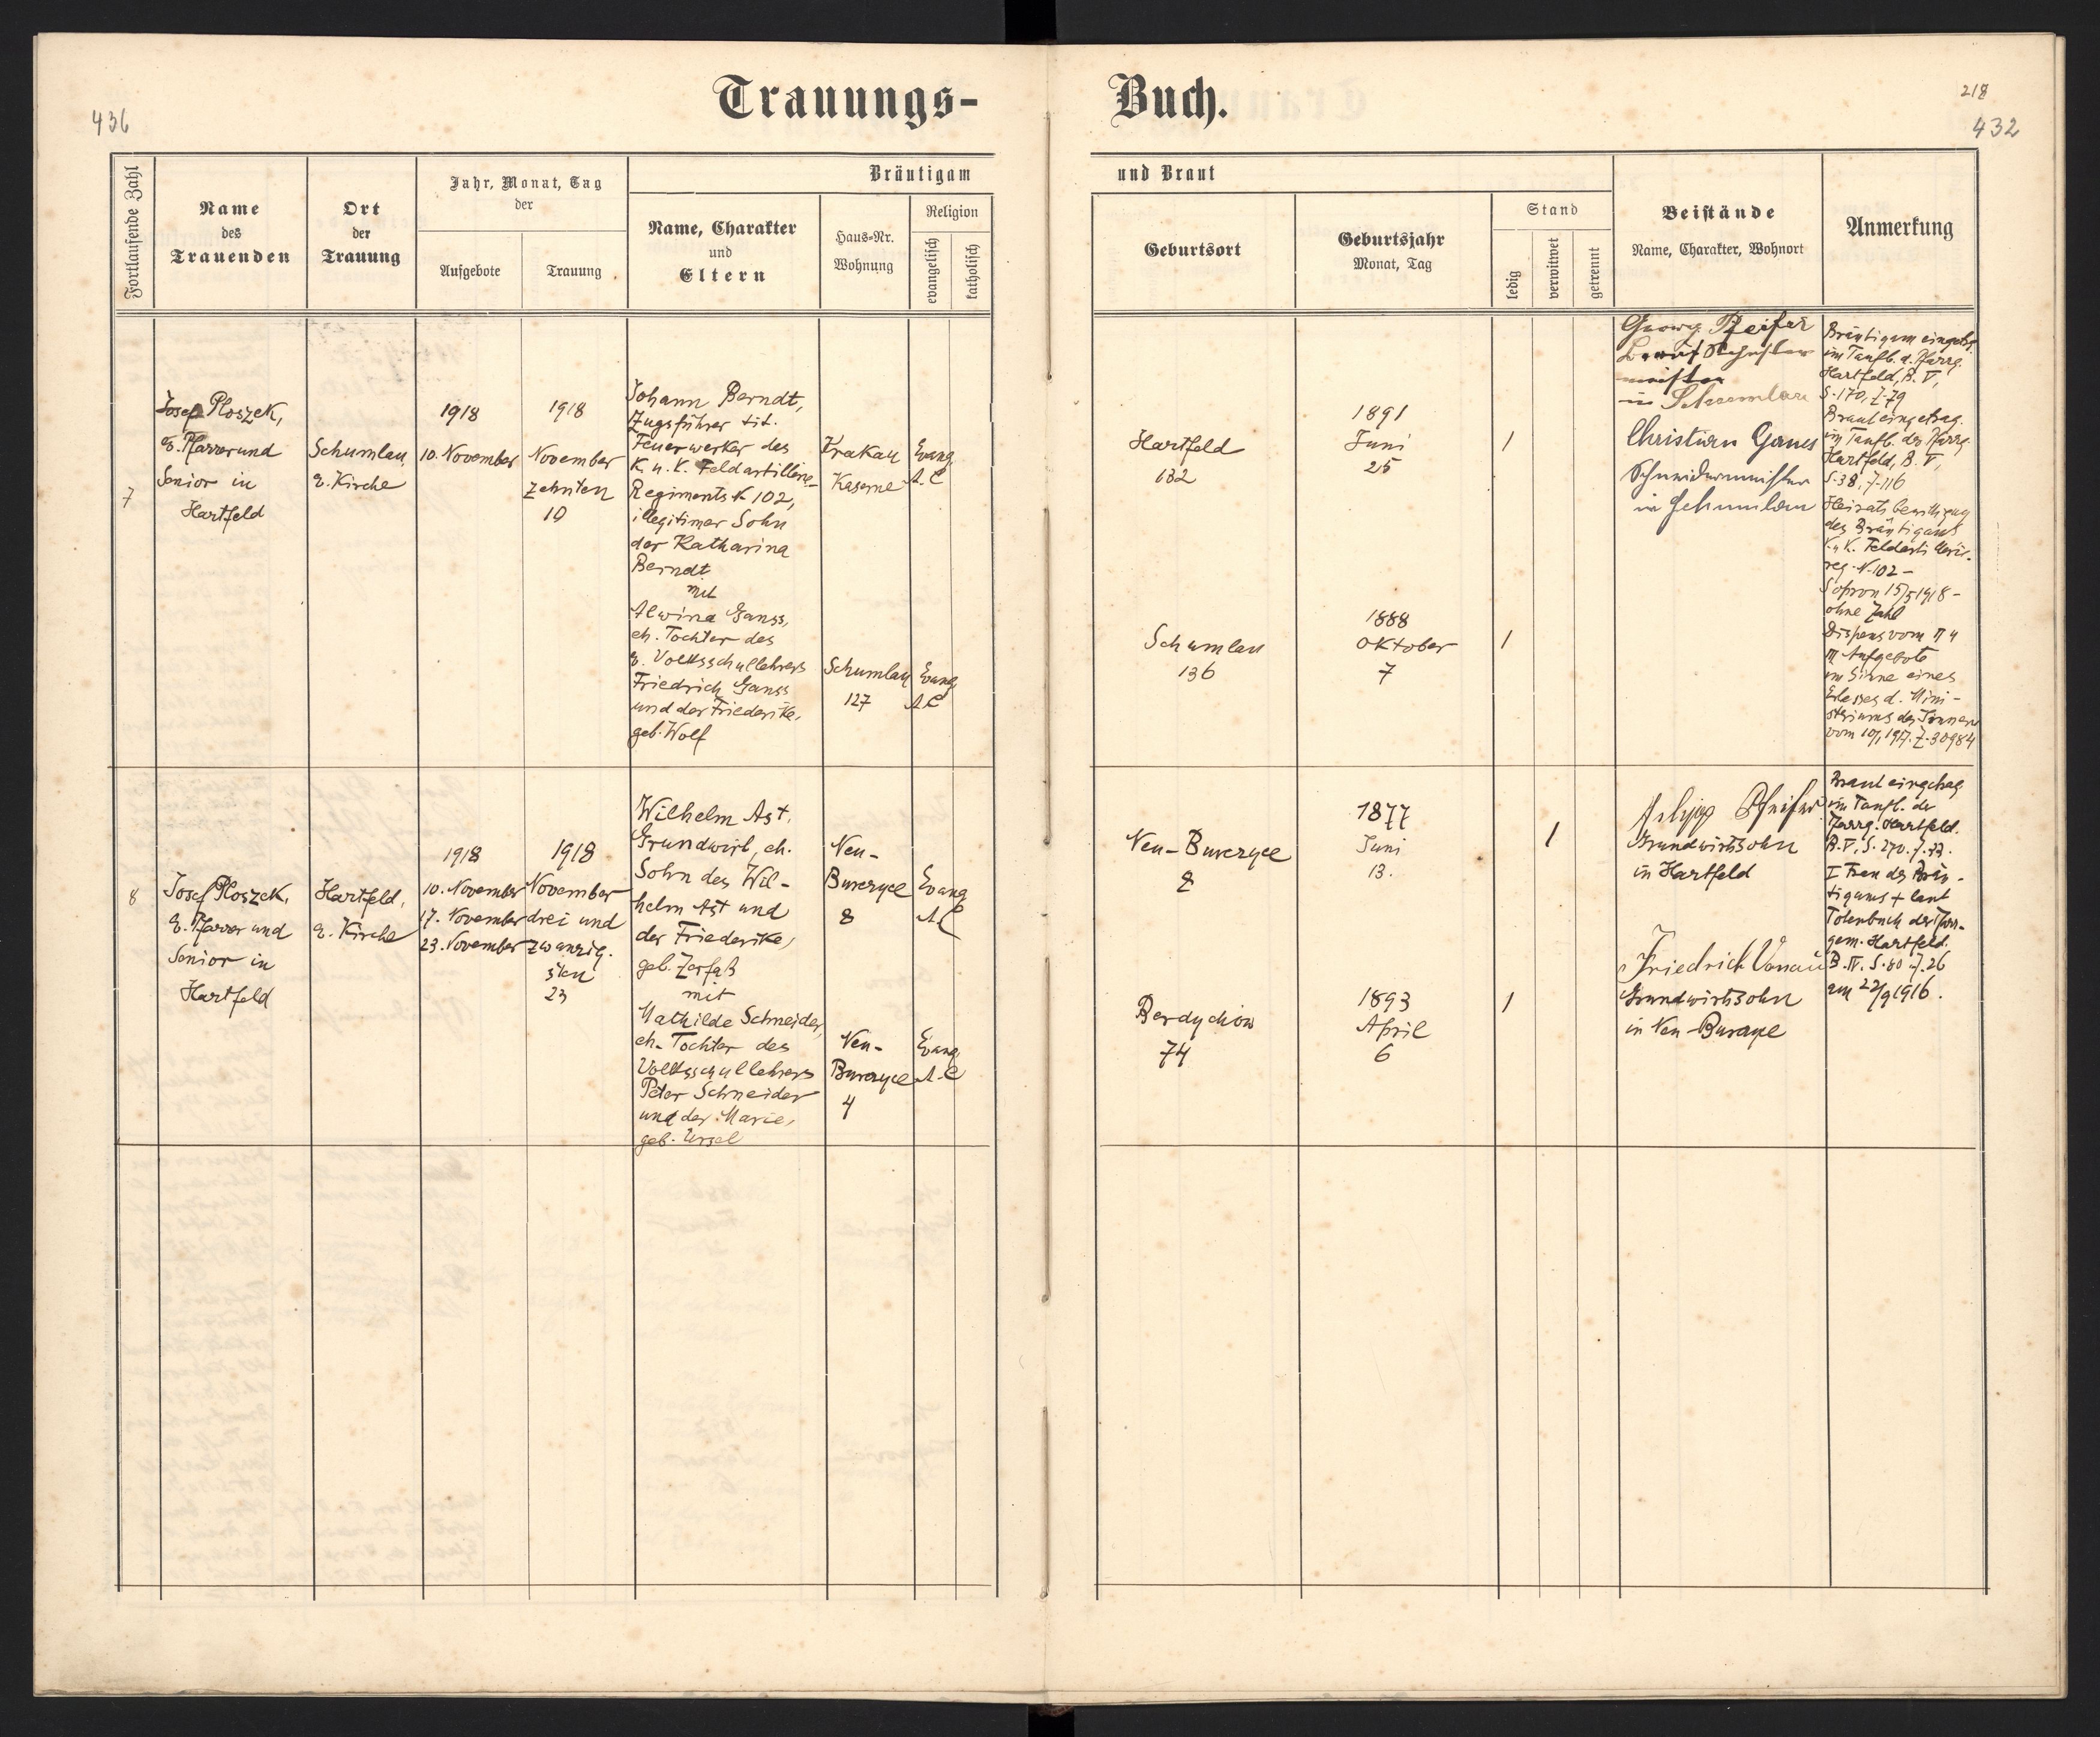 Trauungs-
Buch.
436
218
432
Fortlaufende Zahl
Name
des
Trauenden
Ort
der
Trauung
Jahr, Monat, Tag
der
Aufgebote
Trauung
Bräutigam
Name, Charakter
und
Eltern
Haus-Nr.
Wohnung
Religion
evangelisch
katholisch
und Braut
Geburtsort
Geburtsjahr
Monat, Tag
Stand
ledig
verwitwet
getrennt
Beistände
Name, Charakter, Wohnort
Anmerkung
7
Josef Ploszek,
e. Pfarrer und
Senior in
Hartfeld
Schumlau,
e. Kirche
1918
10. November
1918
November
zehnten
10
Johann Berndt,
Zugsführer tit.
Feuerwerker des
k. u. k. Feldartillerie-
Regiments N 102,
illegitimer Sohn
der Katharina
Berndt
mit
Alwina Ganss,
eh. Tochter des
e. Volksschullehrers
Friedrich Ganss
und der Friederike,
geb. Wolf
Krakau
Kaserne
Evang.
A. C
Schumlau
127
Evang
A C
Hartfeld
132
1891
Juni
25
1
Schumlau
136
1888
Oktober
7
1
Georg Pfeifer
meister
in Schumlau
Christian Ganss
Schneidermeister
in Schumlau
Bräutigam eingetrg.
im Taufb. d. Pfarrg.
Hartfeld, B. V,
S. 170, Z. 79
Braut eingetrag.
im Taufb. der Pfarrg.
Hartfeld, B. V,
S. 38, Z. 116
des Bräutigams
k. u. k. Feldartillerie-
reg. N. 102 -
Sopron 15/5 1918 -
ohne Zahl
Dispens vom II u
III Aufgebote
im Sinne eines
Erlasses d. Mini-
steriums des Innern
vom 10/1 1917. Z. 30984
8
Josef Ploszek,
e. Pfarrer und
Senior in
Hartfeld
Hartfeld,
e. Kirche
1918
10. November
17. November
23. November
1918
November
drei und
zwanzig-
sten
23
Wilhelm Ast,
Grundwirt, eh.
Sohn des Wil-
helm Ast und
der Friederike,
geb. Zerfaß
mit
Mathilde Schneider,
eh. Tochter des
Volksschullehrers
Peter Schneider
und der Marie,
geb. Ursel
Neu-
Burczyce
8
Evang
A. C
Neu-
Burczyce
4
Evang.
A. C
Neu-Burczyce
8
1877
Juni
13.
1
Berdychów
74
1893
April
6
1
Philipp Pfeifer
Grundwirtssohn
in Hartfeld
Friedrich Vonau
Grundwirtssohn
in Neu-Burczyce
Braut eingetrag
im Taufb. der
Pfarrg. Hartfeld.
B. V. S. 270. Z. 33.
I Frau des Bräu-
tigams + laut
Totenbuch der Pfarr-
gem. Hartfeld.
B. IV. S. 80 Z. 26
am 22/9 1916.